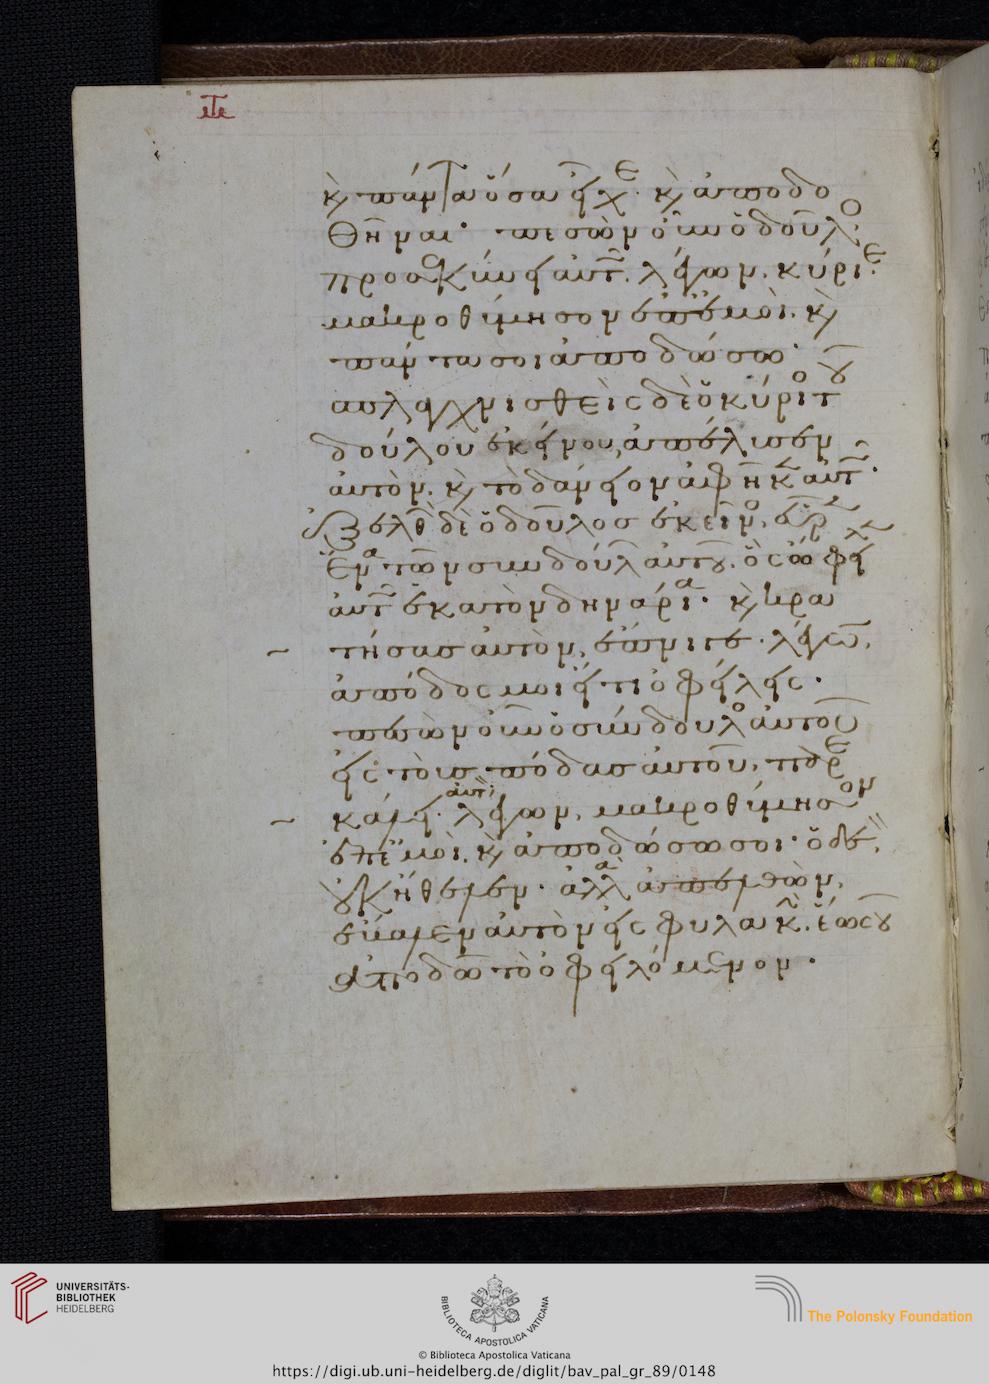 κ(αὶ) πάντα ὅσα εἶχε· κ(αὶ) ἀποδο
θῆναι· πεσὼν οὖν ὁ δοῦλο·
προσεκύνει αὐτ῀. λέγων. κύριε·
μακροθύμησον ἐπ' ἐμοὶ. κ(αὶ)
πάντα σοι ἀποδώσω·
σπλαγχνισθεὶς δὲ ὁ κύριο του
δούλου ἐκείνου, ἀπέλυσεν
αὐτὸν. κ(αὶ) τὸ δάνειον ἀφῆκ αὐτ῀·
ἐξελθ δὲ ὁ δοῦλος ἐκεῖνο, εὗρ
ἕνα τῶν συνδούλ αὐτου. ὃς ὤφει
αὐτ῀ ἑκατὸν δηνάρια· κ(αὶ) κρα
τήσας αὐτὸν, ἔπνιγε· λέγω῀,
ἀπόδος μοι εἴ τι ὀφείλεις·
πεσὼν οὖν ὁ σύνδουλο αὐτοῦ
εἰς τοὺς πόδας αὐτοῦ, παρε
κάλει αὐτ῀· λέγων, μακροθύμησον
ἐπ' ἐμοὶ. κ(αὶ) ἀποδώσω σοι· ὁ δὲ,
οὐκ ἤθελεν· ἀλλὰ ἀπελθὼν,
ἔβαλεν αὐτὸν εἰς φυλακ῀. ἕως οὗ
ἀποδῶ τὸ ὀφειλόμενον·
UNIVERSITÄTS-
BIBLIOTHEK
HEIDELBERG
BIBLIOTECA APOSTOLICA VATICANA
The Polonsky Foundation
© Biblioteca Apostolica Vaticana
https://digi.ub.uni-heidelberg.de/diglit/bav_pal_gr_89/0148